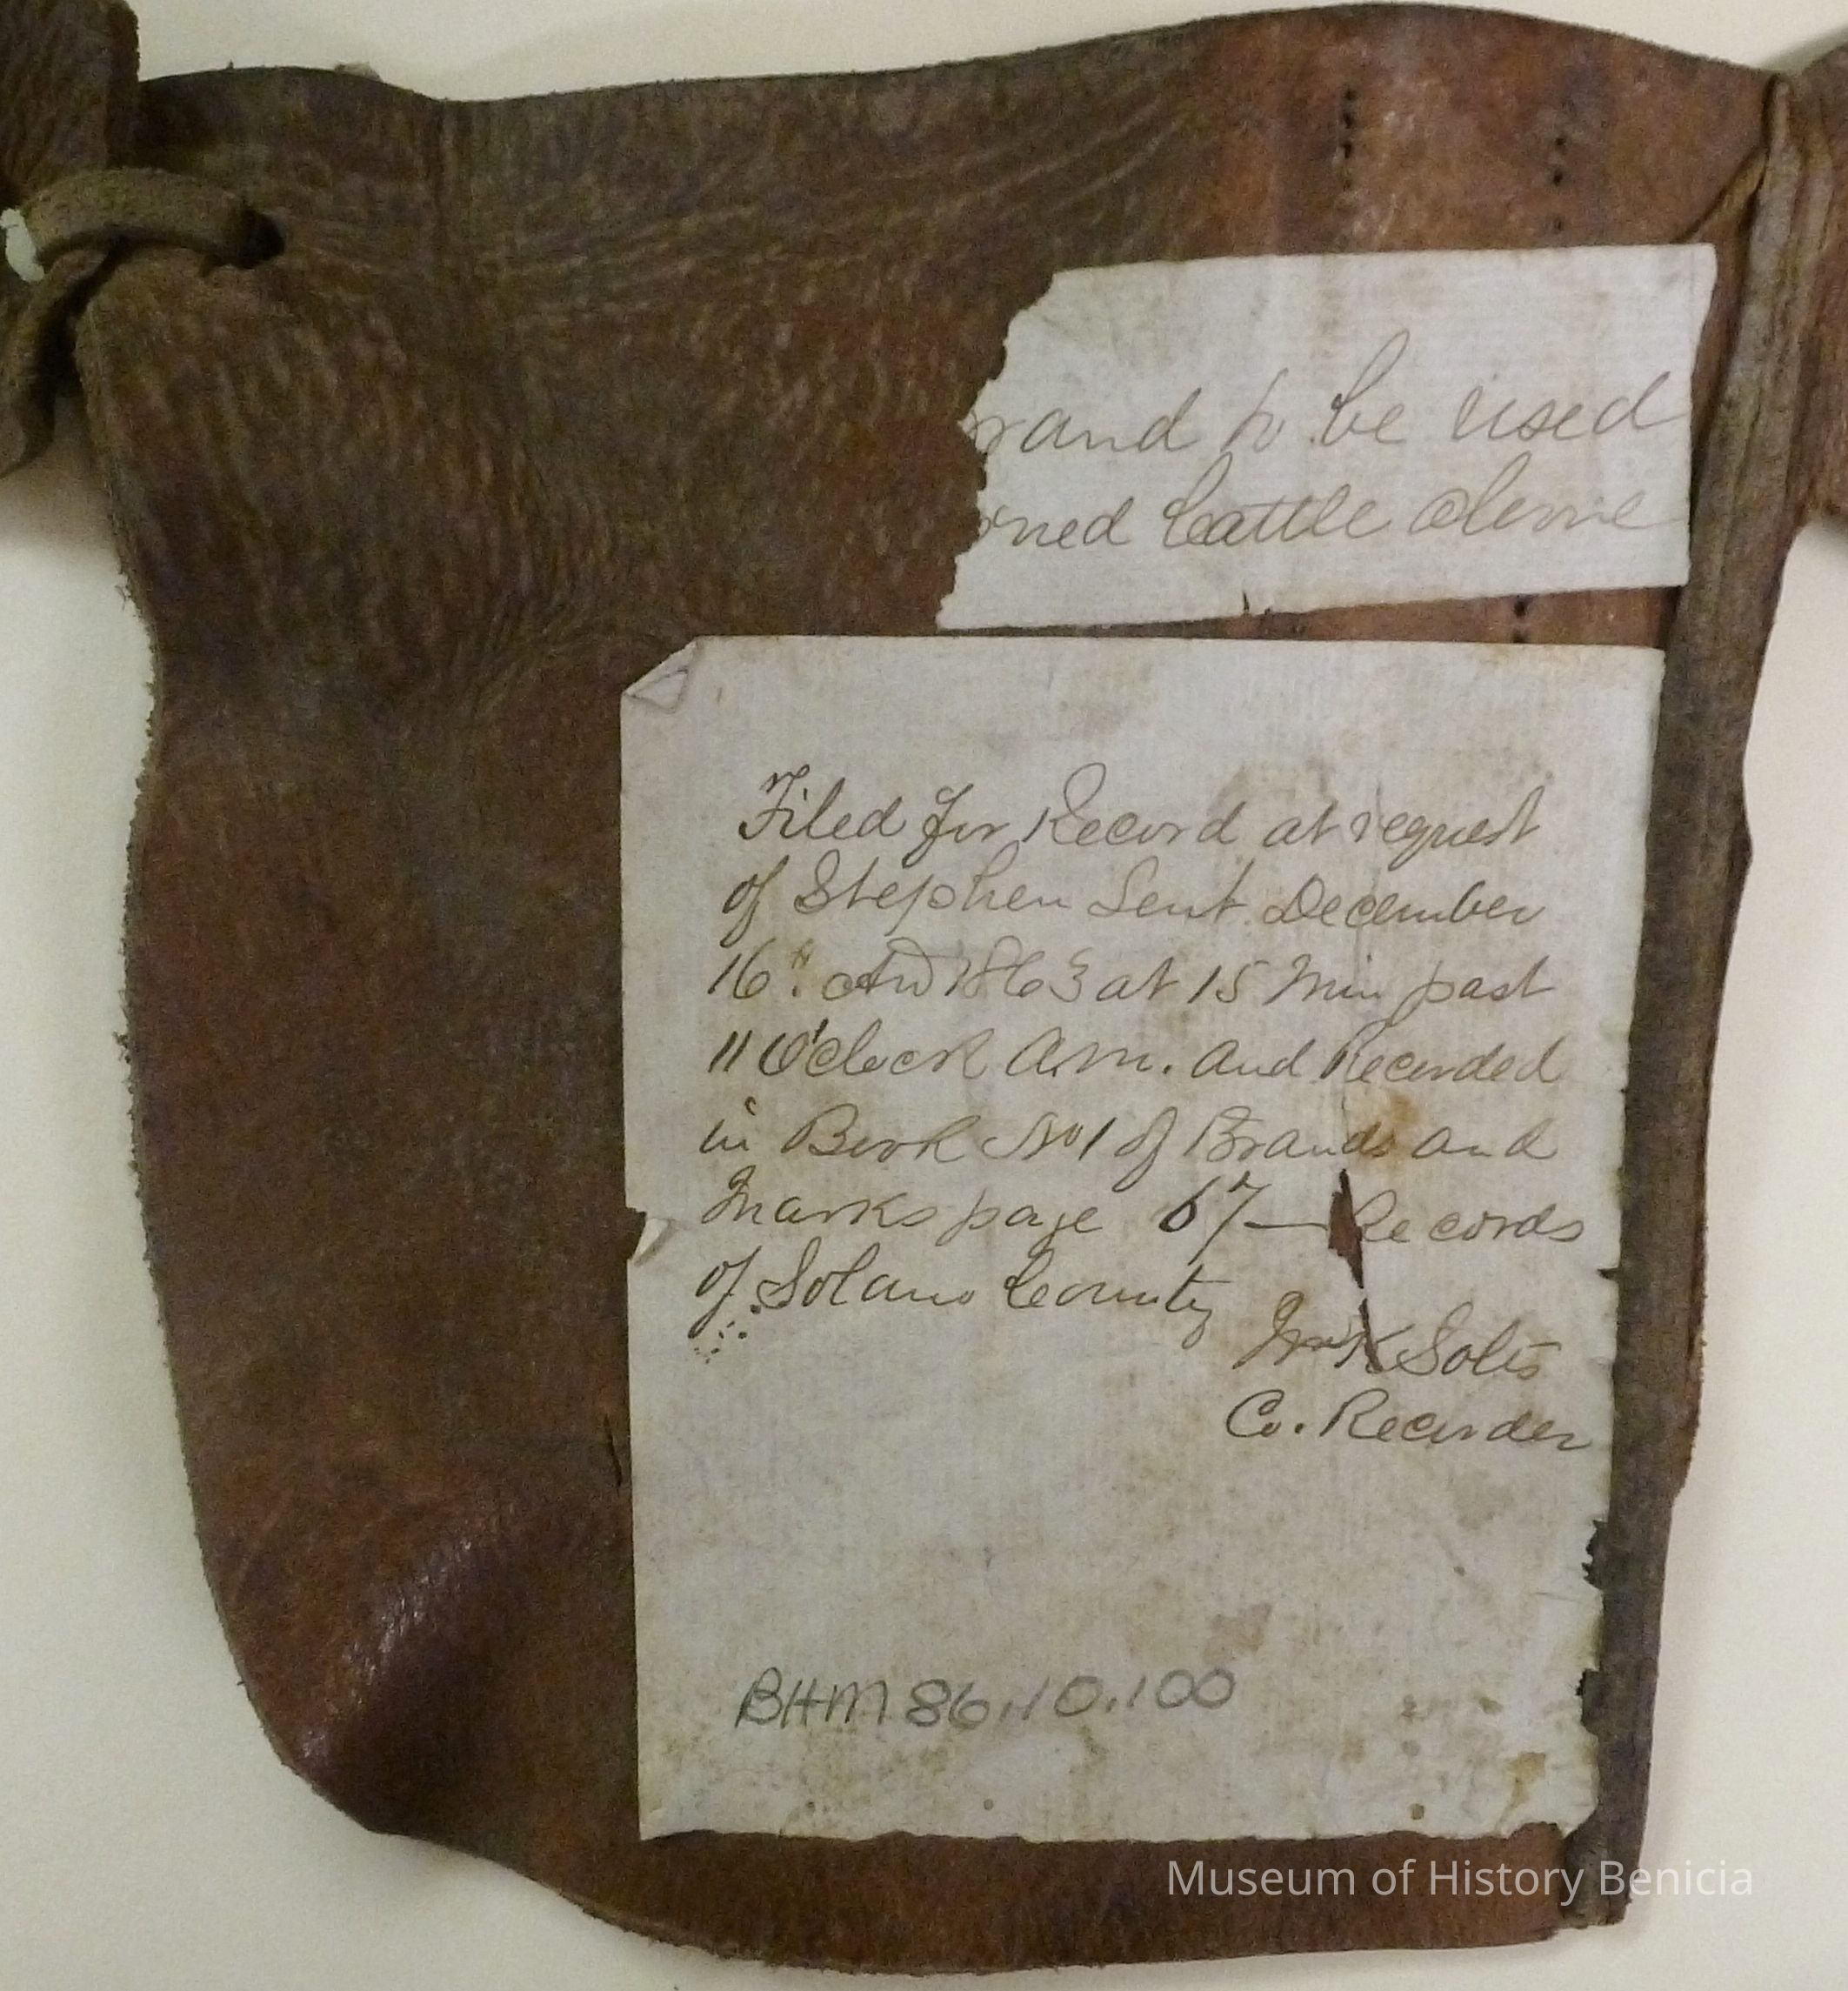 rand to be used
rned Cattle alone
Filed for Record at request
of Stephen Lent December
16" AD 1863 at 15 Min past
11 O'clock A.M. and Recorded
in Book No 1 of Brands and
Marks page 67 — Records
of Solano County
Co. Recorder
BHM 86.10.100
Museum of History Benicia